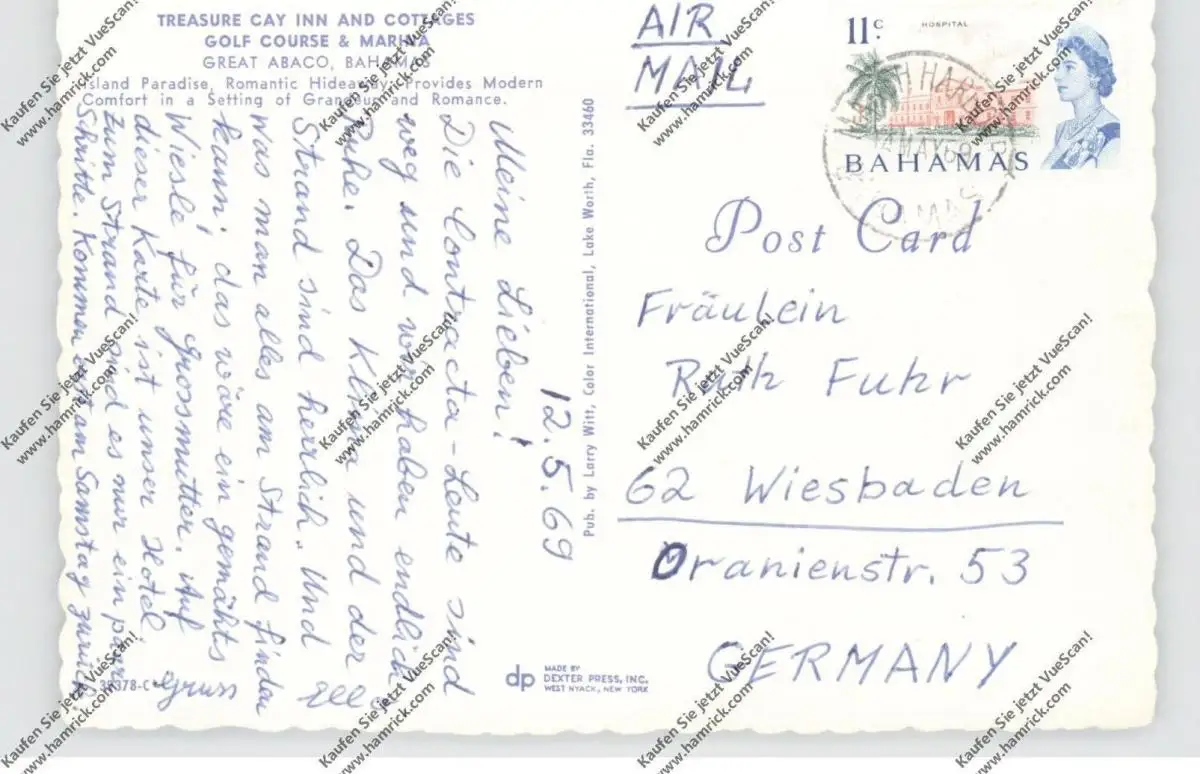 TREASURE CAY INN AND COTTAGES
GOLF COURSE & MARINA
GREAT ABACO, BAHAMAS
Island Paradise, Romantic Hideaway Provides Modern
Comfort in a Setting of Grandeur and Romance.
12.5.69
Meine Lieben!
Die Contracta-Leute sind
weg und wir haben endlich
Ruhe. Das Klima und der
Strand sind herrlich. Und
was man alles am Strand finden
kann, das wäre ein gemähts
Wiesle für Grossmutter. Auf
dieser Karte ist unser Hotel
zum Strand sind es nur ein paar
Shritte. Kommen erst am Samstag zurück
Gruss
35378-C
Pub. by Larry Witt, Color International, Lake Worth, Fla. 33460
dp
MADE BY
DEXTER PRESS, INC.
WEST NYACK, NEW YORK
AIR
MAIL
11c
HOSPITAL
BAHAMAS
MAY 69
Post Card
Fräulein
Ruth Fuhr
62 Wiesbaden
Oranienstr. 53
GERMANY
Kaufen Sie jetzt VueScan!
www.hamrick.com